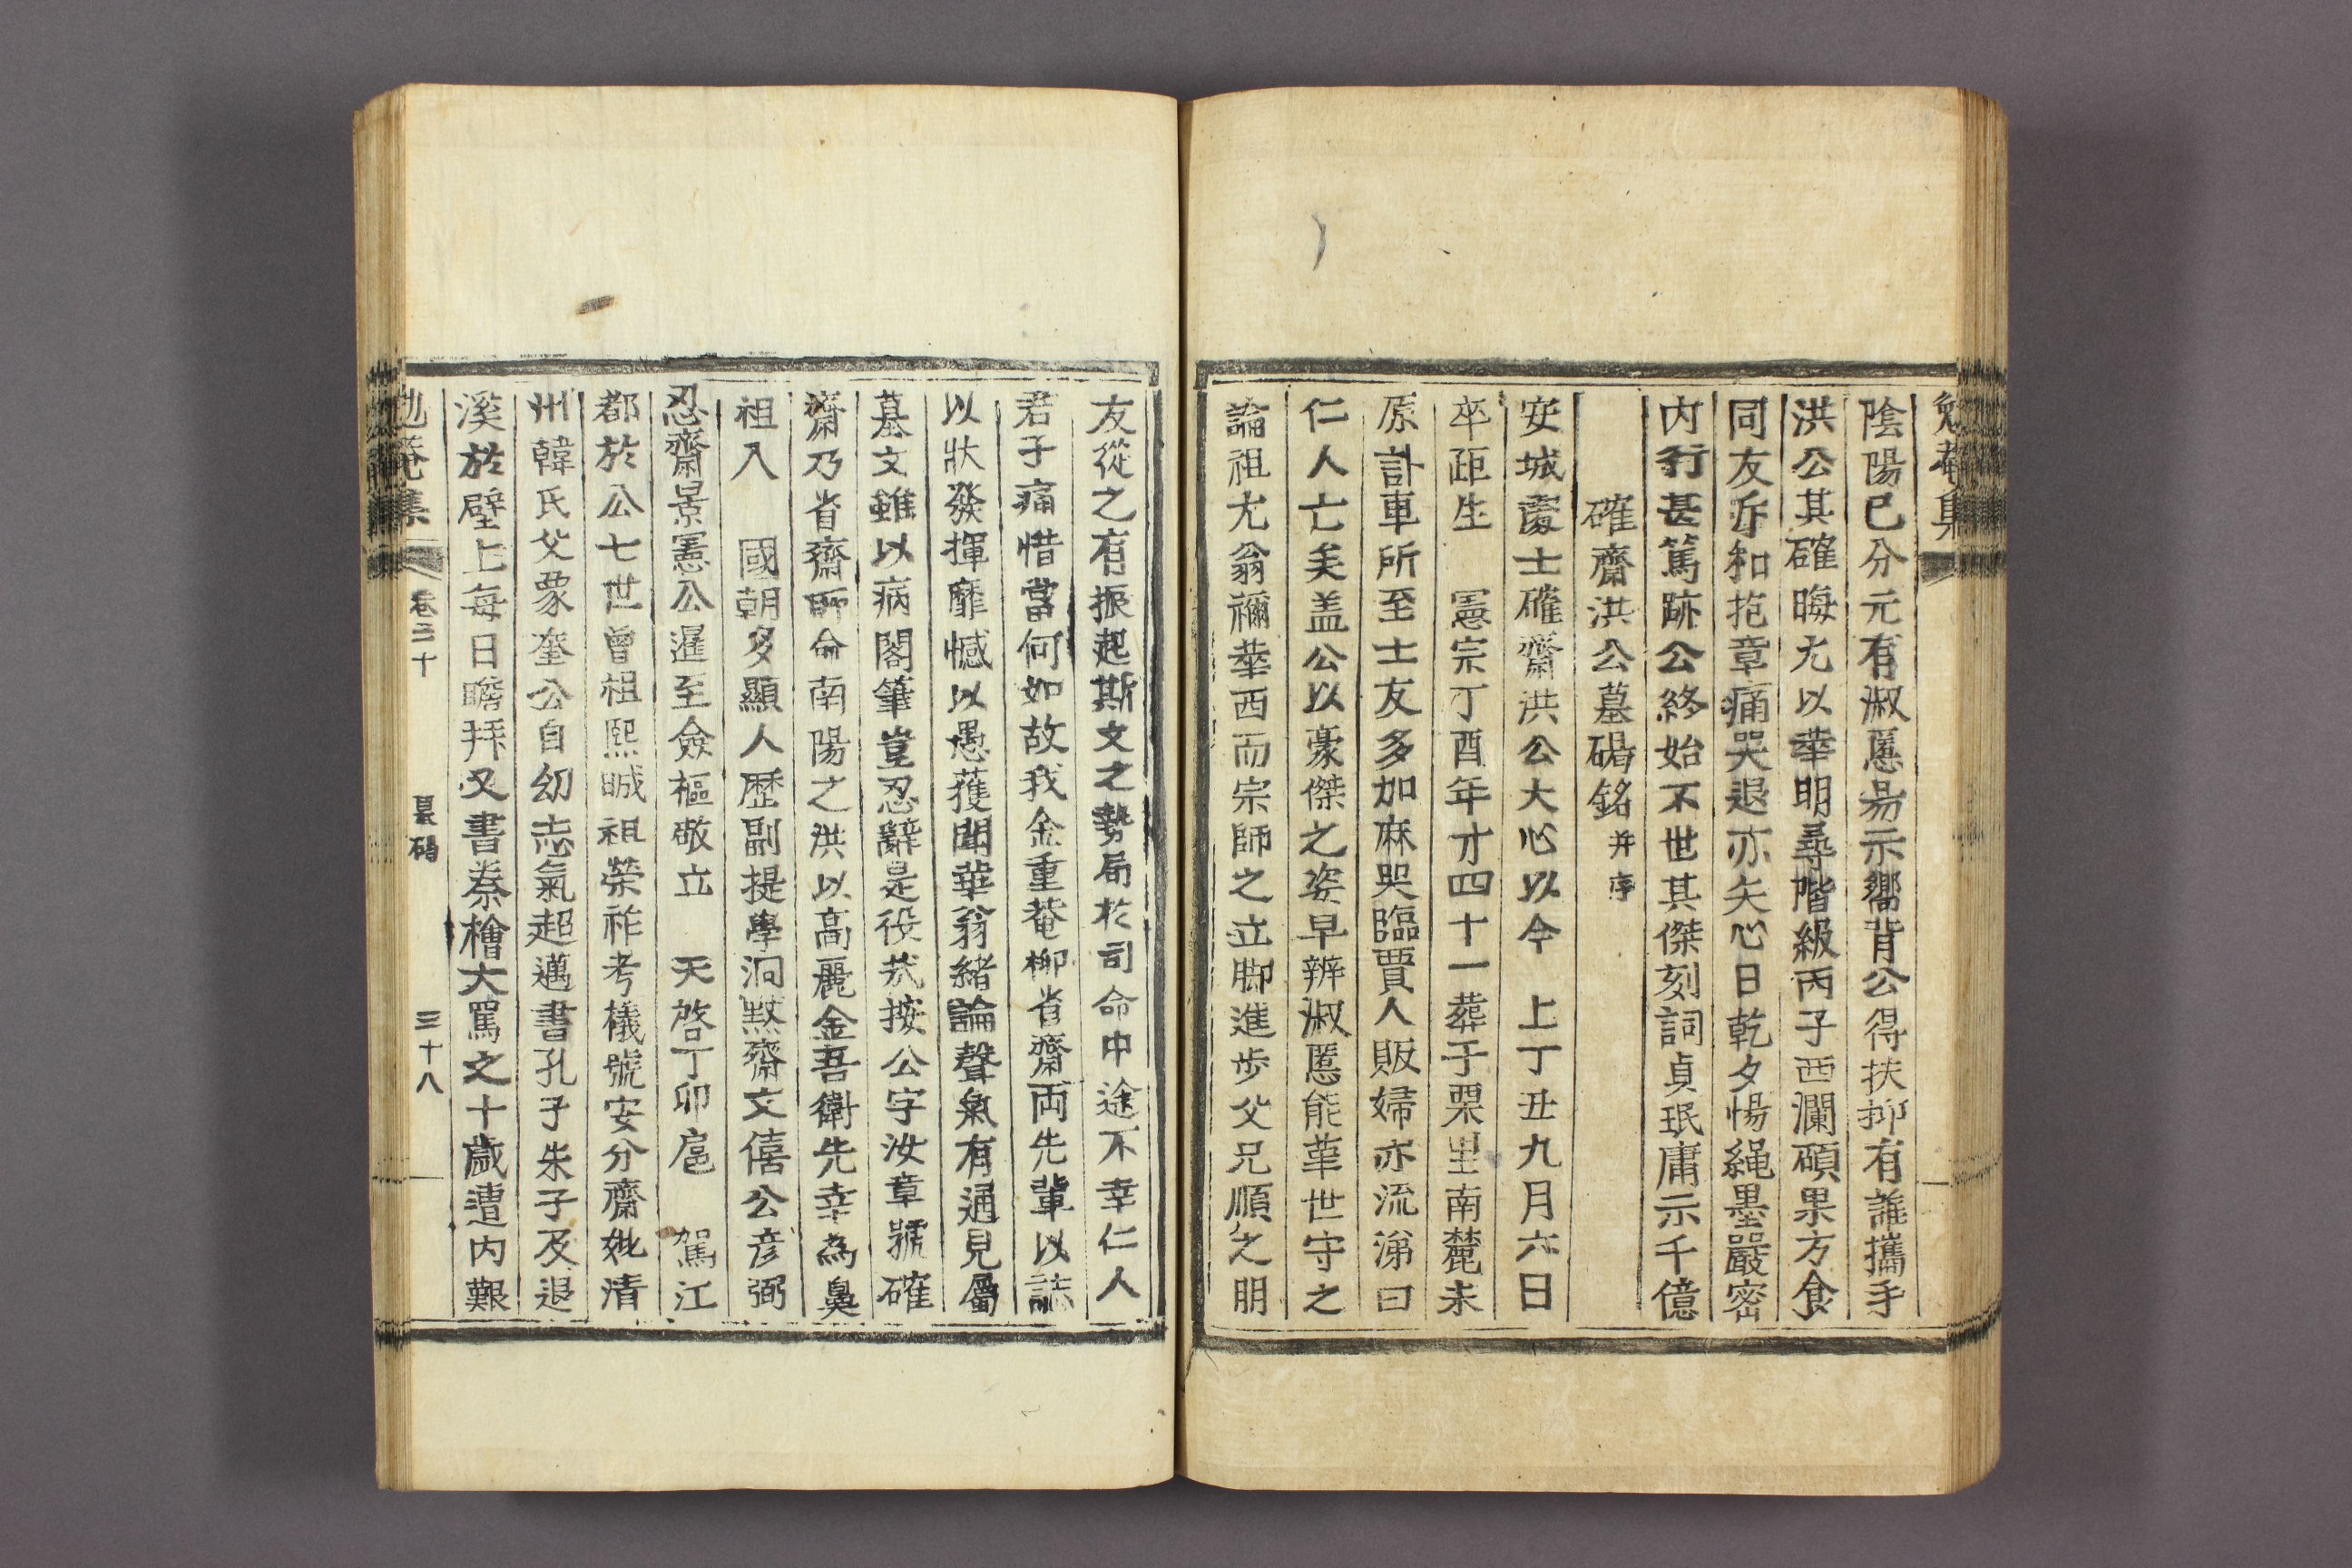 陰陽已分元有淑慝易示嚮背公得扶抑有誰攜手
洪公其確晦尤以華明尋階級丙子西瀾碩果方食
同友斥和抱章痛哭退亦矢心日乾夕惕繩墨嚴密
內行甚篤跡公終始不世其傑刻詞貞珉庸示千億
確齋洪公墓碣銘并序
安城處士確齋洪公大心以今 上丁丑九月六日
卒距生 憲宗丁酉年才四十一葬于栗里南麓未
原訃車所至士友多加麻哭臨賈人販婦亦流涕曰
仁人亡矣盖公以豪傑之姿早辨淑慝能革世守之
論祖尤翁禰華西而宗師之立脚進步父兄順之朋
友從之有振起斯文之勢局於司命中途不幸仁人
君子痛惜當何如故我金重菴柳省齋両先輩以誌
以狀發揮靡憾以愚獲聞華翁緒論聲氣有通見屬
墓文雖以病閣筆豈忍辭是役㢤按公字汝章號確
齋乃省齋師命南陽之洪以高麗金吾衛先幸爲鼻
祖入 國朝多顯人歷副提學泂默齋文僖公彦弼
忍齋景憲公暹至僉樞敬立 天啓丁卯扈 駕江
都於公七世曾祖熙晠祖榮祚考檥號安分齋妣清
州韓氏父象奎公自幼志氣超邁書孔子朱子及退
溪於壁上每日瞻拜又書秦檜大罵之十歲遭內艱
勉菴集 卷二十 墓碣 三十八